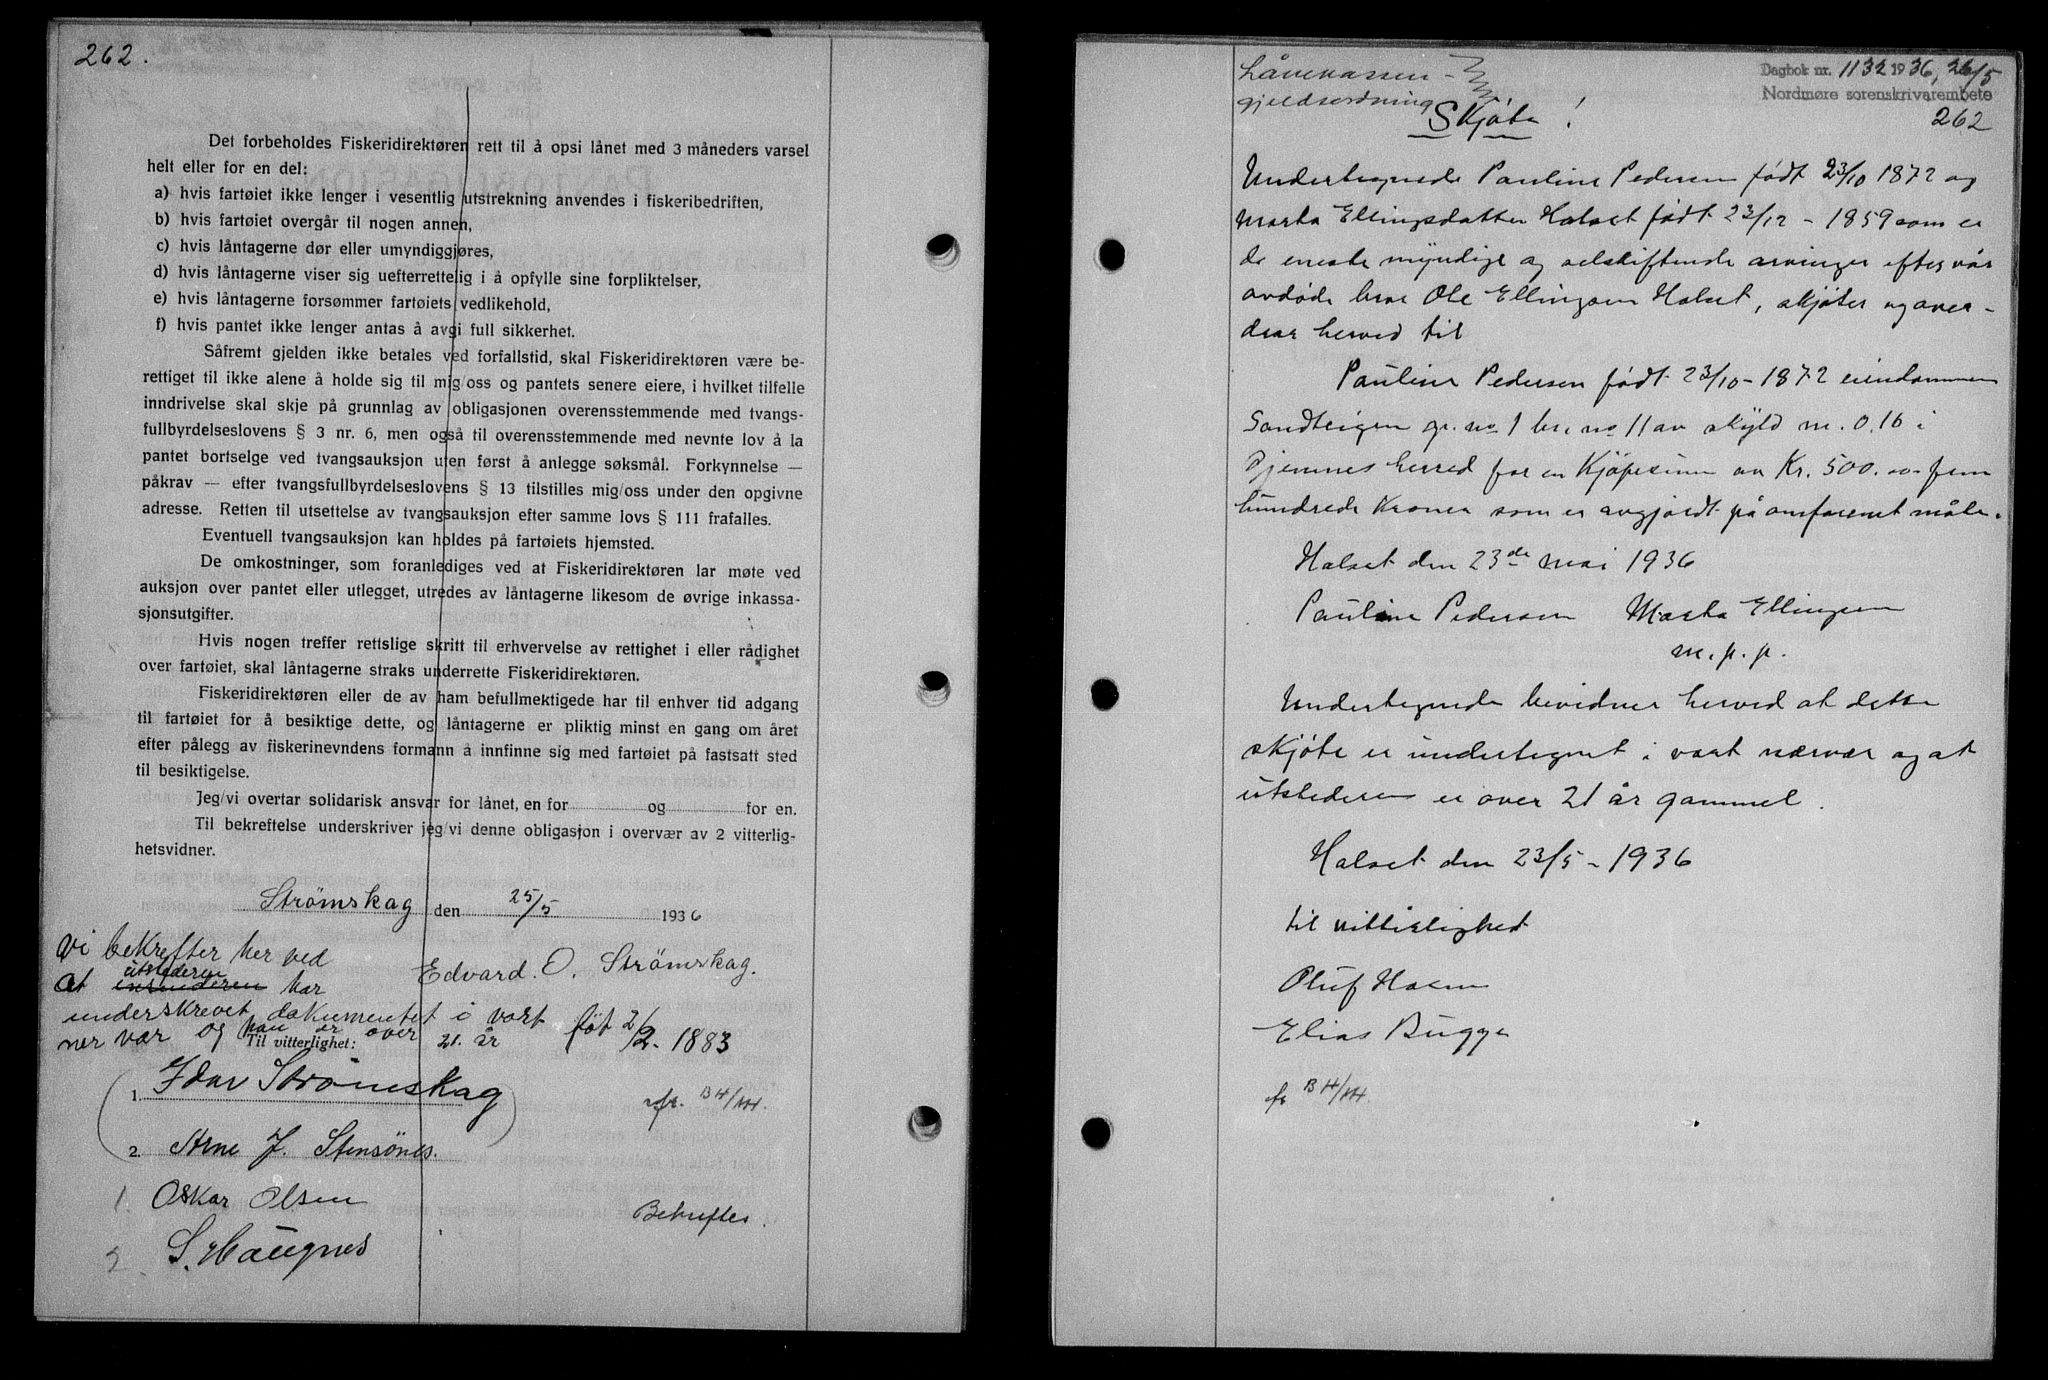 262.
Det forbeholdes Fiskeridirektøren rett til å opsi lånet med 3 måneders varsel
helt eller for en del:
a) hvis fartøiet ikke lenger i vesentlig utstrekning anvendes i fiskeribedriften,
b) hvis fartøiet overgår til nogen annen,
c) hvis låntagerne dør eller umyndiggjøres,
d) hvis låntagerne viser sig uefterrettelig i å opfylle sine forpliktelser,
e) hvis låntagerne forsømmer fartøiets vedlikehold,
f) hvis pantet ikke lenger antas å avgi full sikkerhet.
Såfremt gjelden ikke betales ved forfallstid, skal Fiskeridirektøren være be-
rettiget til ikke alene å holde sig til mig/oss og pantets senere eiere, i hvilket tilfelle
inndrivelse skal skje på grunnlag av obligasjonen overensstemmende med tvangs-
fullbyrdelseslovens § 3 nr. 6, men også til overensstemmende med nevnte lov å la
pantet bortselge ved tvangsauksjon uten først å anlegge søksmål. Forkynnelse —
påkrav — efter tvangsfullbyrdelseslovens § 13 tilstilles mig/oss under den opgivne
adresse. Retten til utsettelse av tvangsauksjon efter samme lovs § 111 frafalles.
Eventuell tvangsauksjon kan holdes på fartøiets hjemsted.
De omkostninger, som foranlediges ved at Fiskeridirektøren lar møte ved
auksjon over pantet eller utlegget, utredes av låntagerne likesom de øvrige inkassa-
sjonsutgifter.
Hvis nogen treffer rettslige skritt til erhvervelse av rettighet i eller rådighet
over fartøiet, skal låntagerne straks underrette Fiskeridirektøren.
Fiskeridirektøren eller de av ham befullmektigede har til enhver tid adgang
til fartøiet for å besiktige dette, og låntagerne er pliktig minst en gang om året
efter pålegg av fiskerinevndens formann å innfinne sig med fartøiet på fastsatt sted
til besiktigelse.
Jeg/vi overtar solidarisk ansvar for lånet, en for og for en.
Til bekreftelse underskriver jeg/vi denne obligasjon i overvær av 2 vitterlig-
hetsvidner.
Strømskag den 25/5 1936
Vi bekrefter her ved
Edvard. O. Strømskag.
utstederen
at har
underskrevet dokumentet i vort
føt 2/2. 1883
nervær og han er over 21. år
Til vitterlighet:
1. Idar Strømskag
2. Arne J. Stensönes.
1. Oskar Olsen
Bekreftes.
2. S. Haugnes
Lånekassen -
gjeldsordning
Dagbok nr. 1132 1936, 26/5
Nordmøre sorenskrivarembete
262
Skjøte!
Undertegnede Pauline Pedersen født 23/10 1872 og
Marta Ellingsdatter Halset født 23/12 - 1859 som er
de eneste myndige og selskiftende arvinger efter vår
avdøde bror Ole Ellingsen Halset, skjøter og over-
drar herved til
Pauline Pedersen født 23/10 - 1872 eiendommen
Sandteigen gr. no 1 br. no 11 av skyld m. 0.16 i
Tjennes herred for en Kjøpesum av Kr. 500.00 fem
hundrede Kroner som er avgjordt på omforenet måte.
Halset den 23de mai 1936
Pauline Pedersen Marta Ellingsen
m. p. p.
Undertegnede bevidner herved at dette
skjøte er undertegnet i vort nærvær og at
utstederen er over 21 år gammel.
Halset den 23/5 - 1936
til vitterlighet
Oluf Holm
Elias Bugge